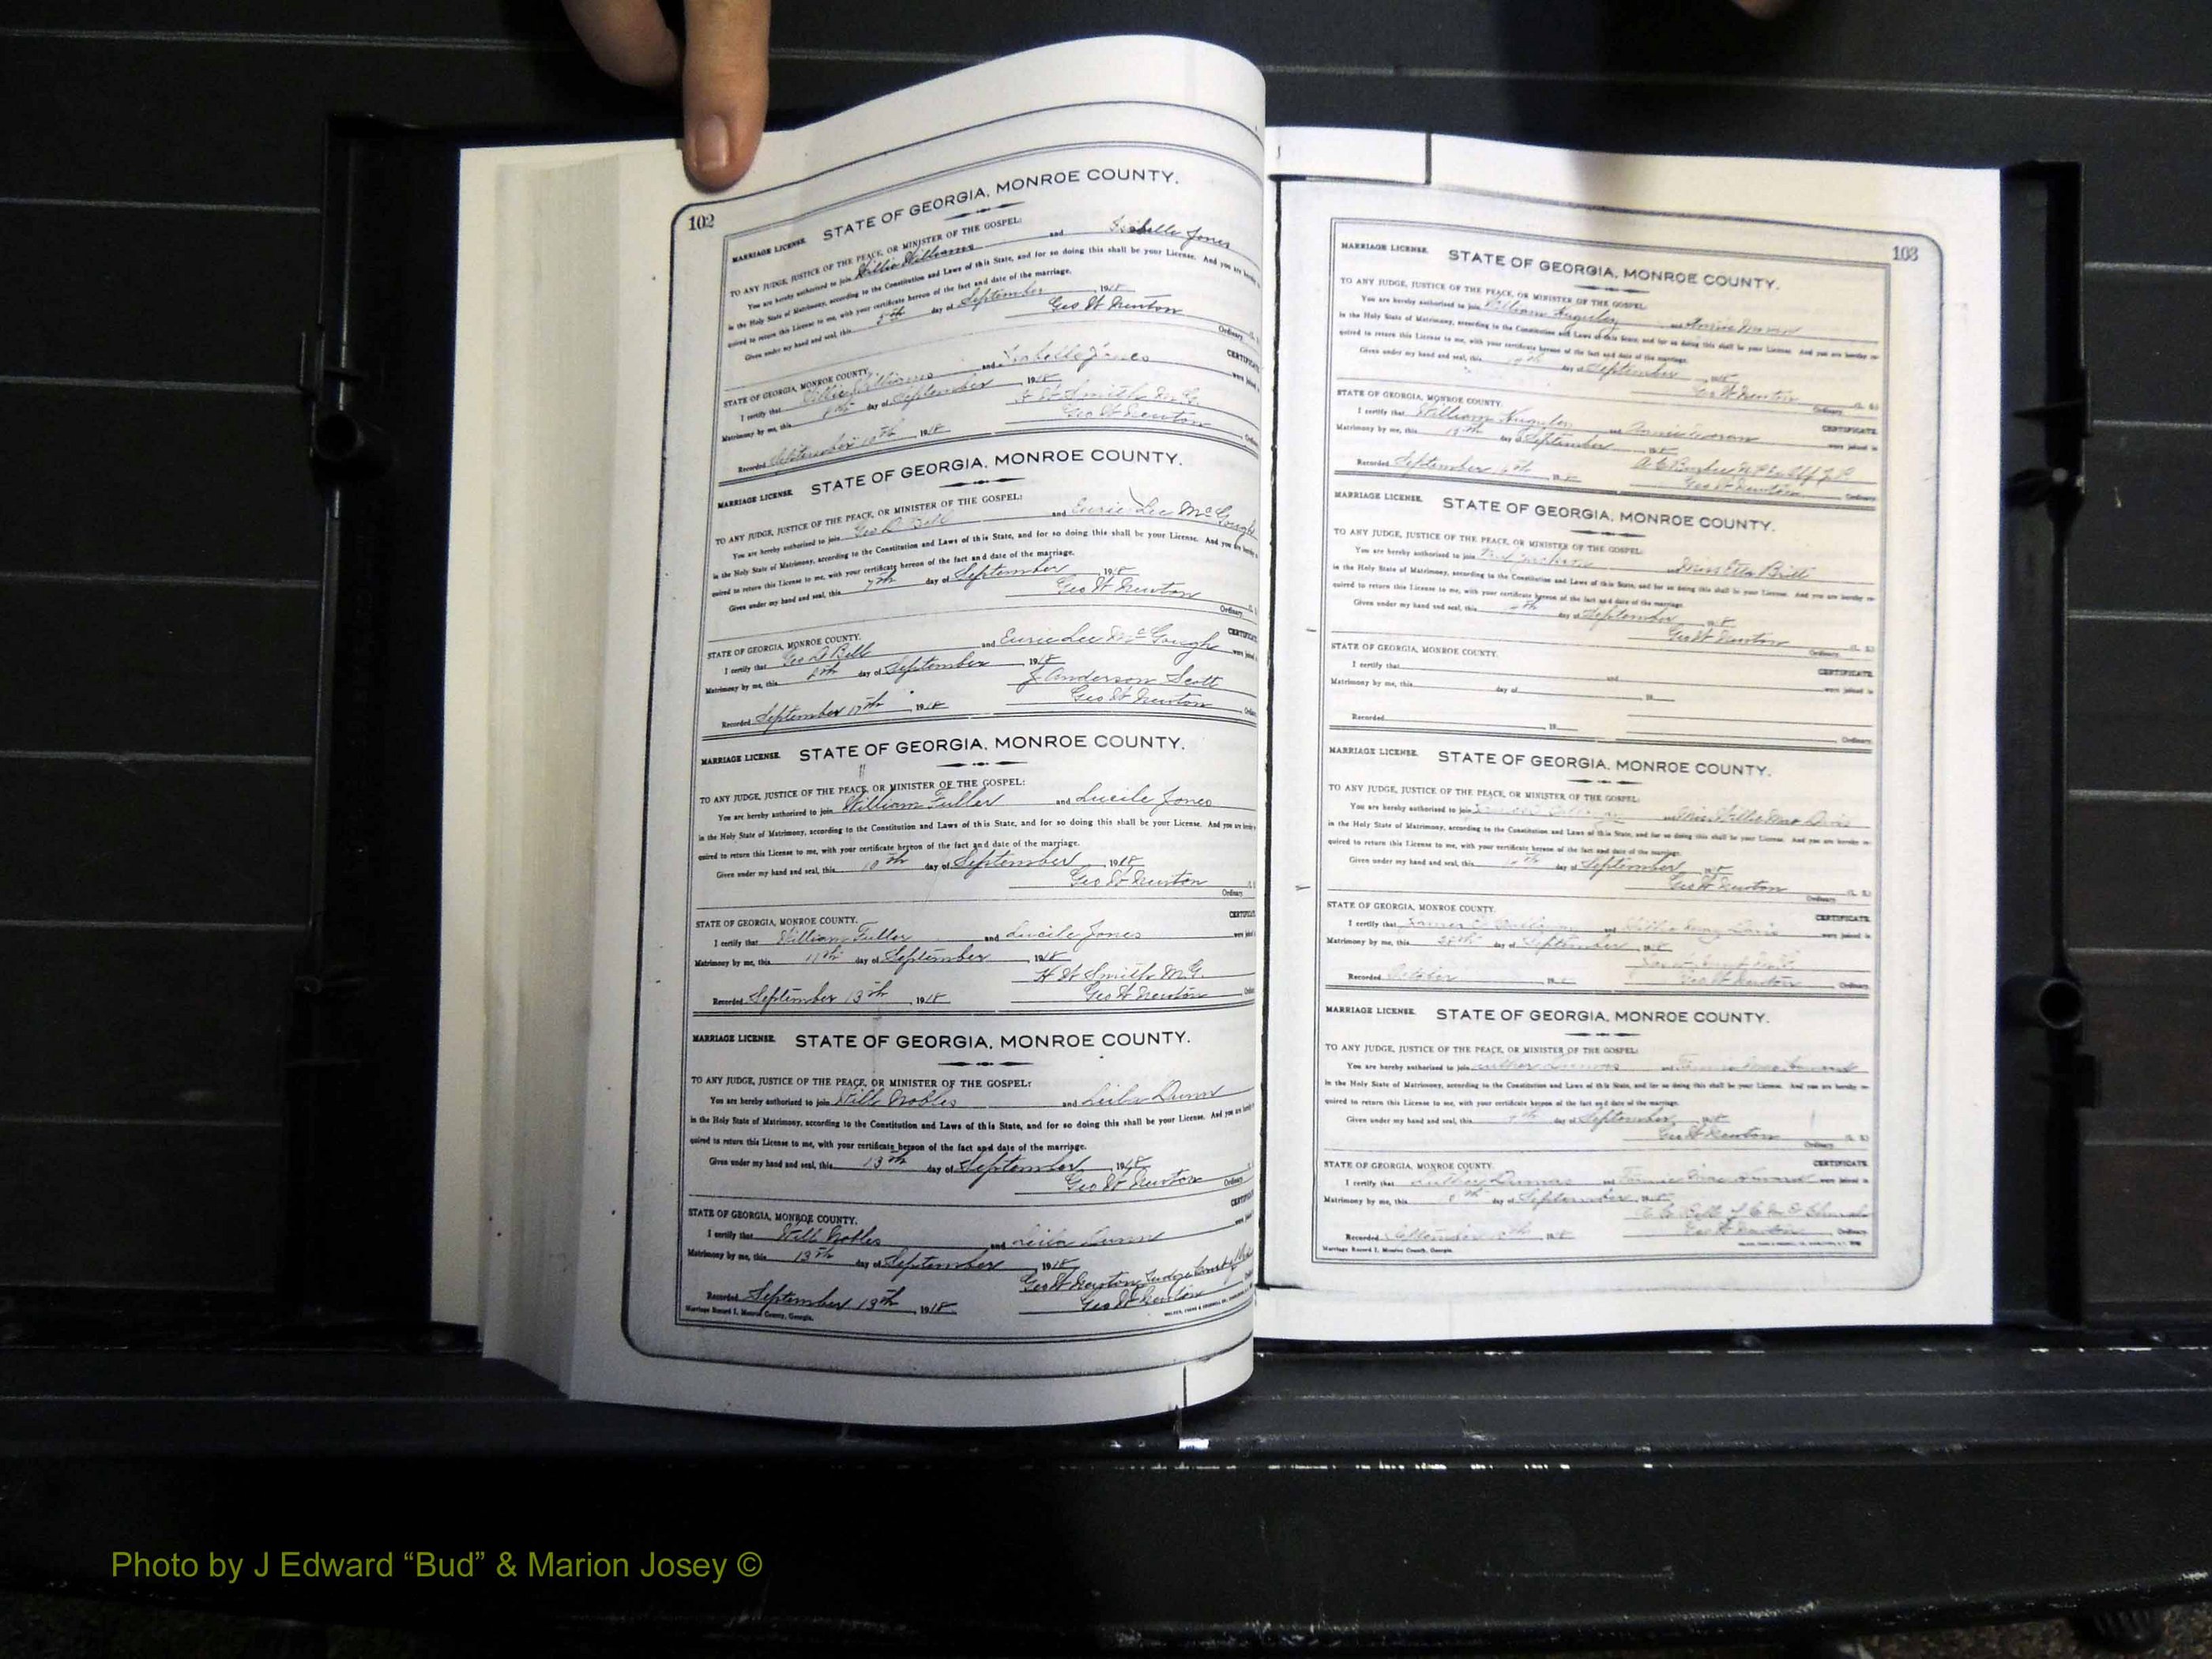 102
MARRIAGE LICENSE. STATE OF GEORGIA, MONROE COUNTY.
TO ANY JUDGE, JUSTICE OF THE PEACE, OR MINISTER OF THE GOSPEL:
You are hereby authorized to join Willie Williams and Isabelle Jones
in the Holy State of Matrimony, according to the Constitution and Laws of this State, and for so doing this shall be your License. And you are hereby
quired to return this License to me, with your certificate hereon of the fact and date of the marriage.
Given under my hand and seal, this 5th day of September, 1918
Geo W Newton
Ordinary.
STATE OF GEORGIA, MONROE COUNTY. CERTIFICATE
I certify that Willie Williams and Isabelle Jones were joined
Matrimony by me, this 8th day of September, 1918
H W Smith M.G.
Recorded September 10th, 1918 Geo W Newton
MARRIAGE LICENSE. STATE OF GEORGIA, MONROE COUNTY.
TO ANY JUDGE, JUSTICE OF THE PEACE, OR MINISTER OF THE GOSPEL:
You are hereby authorized to join Geo D Bell and Eurie Lee McGough
in the Holy State of Matrimony, according to the Constitution and Laws of this State, and for so doing this shall be your License. And you are hereby
quired to return this License to me, with your certificate hereon of the fact and date of the marriage.
Given under my hand and seal, this 7th day of September, 1918
Geo W Newton
Ordinary.
STATE OF GEORGIA, MONROE COUNTY. CERTIFICATE
I certify that Geo D Bell and Eurie Lee McGough were joined
Matrimony by me, this 8th day of September, 1918
J Anderson Scott
Recorded September 17th, 1918 Geo W Newton
MARRIAGE LICENSE. STATE OF GEORGIA, MONROE COUNTY.
TO ANY JUDGE, JUSTICE OF THE PEACE, OR MINISTER OF THE GOSPEL:
You are hereby authorized to join William Fuller and Lucile Jones
in the Holy State of Matrimony, according to the Constitution and Laws of this State, and for so doing this shall be your License. And you are hereby
quired to return this License to me, with your certificate hereon of the fact and date of the marriage.
Given under my hand and seal, this 10th day of September, 1918
Geo W Newton
Ordinary.
STATE OF GEORGIA, MONROE COUNTY. CERTIFICATE
I certify that William Fuller and Lucile Jones were joined
Matrimony by me, this 11th day of September, 1918
H W Smith M.G.
Recorded September 13th, 1918 Geo W Newton
MARRIAGE LICENSE. STATE OF GEORGIA, MONROE COUNTY.
TO ANY JUDGE, JUSTICE OF THE PEACE, OR MINISTER OF THE GOSPEL:
You are hereby authorized to join Will Nobles and Leila Dunn
in the Holy State of Matrimony, according to the Constitution and Laws of this State, and for so doing this shall be your License. And you are hereby
quired to return this License to me, with your certificate hereon of the fact and date of the marriage.
Given under my hand and seal, this 13th day of September, 1918
Geo W Newton
Ordinary.
STATE OF GEORGIA, MONROE COUNTY.
I certify that Will Nobles and Leila Dunn
Matrimony by me, this 13th day of September, 1918
Geo W Newton Judge
Recorded September 13th, 1918 Geo W Newton
Marriage Record I, Monroe County, Georgia.
103
MARRIAGE LICENSE. STATE OF GEORGIA, MONROE COUNTY.
TO ANY JUDGE, JUSTICE OF THE PEACE, OR MINISTER OF THE GOSPEL:
You are hereby authorized to join William and Annie
in the Holy State of Matrimony, according to the Constitution and Laws of this State, and for so doing this shall be your License. And you are hereby re-
quired to return this License to me, with your certificate hereon of the fact and date of the marriage.
Given under my hand and seal, this day of September, 1918
Geo W Newton (L. S.)
Ordinary.
STATE OF GEORGIA, MONROE COUNTY. CERTIFICATE.
I certify that William and Annie were joined in
Matrimony by me, this day of September, 1918
Recorded September Geo W Newton Ordinary.
MARRIAGE LICENSE. STATE OF GEORGIA, MONROE COUNTY.
TO ANY JUDGE, JUSTICE OF THE PEACE, OR MINISTER OF THE GOSPEL:
You are hereby authorized to join Miss Etta Britt
in the Holy State of Matrimony, according to the Constitution and Laws of this State, and for so doing this shall be your License. And you are hereby re-
quired to return this License to me, with your certificate hereon of the fact and date of the marriage.
Given under my hand and seal, this day of September, 1918
Geo W Newton (L. S.)
Ordinary.
STATE OF GEORGIA, MONROE COUNTY. CERTIFICATE.
I certify that and were joined in
Matrimony by me, this day of 19
Recorded 19 Ordinary.
MARRIAGE LICENSE. STATE OF GEORGIA, MONROE COUNTY.
TO ANY JUDGE, JUSTICE OF THE PEACE, OR MINISTER OF THE GOSPEL:
You are hereby authorized to join and Miss Willie May Davis
in the Holy State of Matrimony, according to the Constitution and Laws of this State, and for so doing this shall be your License. And you are hereby re-
quired to return this License to me, with your certificate hereon of the fact and date of the marriage.
Given under my hand and seal, this day of September, 1918
Geo W Newton (L. S.)
Ordinary.
STATE OF GEORGIA, MONROE COUNTY. CERTIFICATE.
I certify that James and Willie May Davis were joined in
Matrimony by me, this 28th day of September, 1918
Recorded October Geo W Newton Ordinary.
MARRIAGE LICENSE. STATE OF GEORGIA, MONROE COUNTY.
TO ANY JUDGE, JUSTICE OF THE PEACE, OR MINISTER OF THE GOSPEL:
You are hereby authorized to join Luther and
in the Holy State of Matrimony, according to the Constitution and Laws of this State, and for so doing this shall be your License. And you are hereby re-
quired to return this License to me, with your certificate hereon of the fact and date of the marriage.
Given under my hand and seal, this day of September, 1918
Geo W Newton (L. S.)
Ordinary.
STATE OF GEORGIA, MONROE COUNTY. CERTIFICATE.
I certify that Luther Dumas and were joined in
Matrimony by me, this day of September, 1918
Recorded September Geo W Newton Ordinary.
Marriage Record I, Monroe County, Georgia.
Photo by J Edward “Bud” & Marion Josey ©